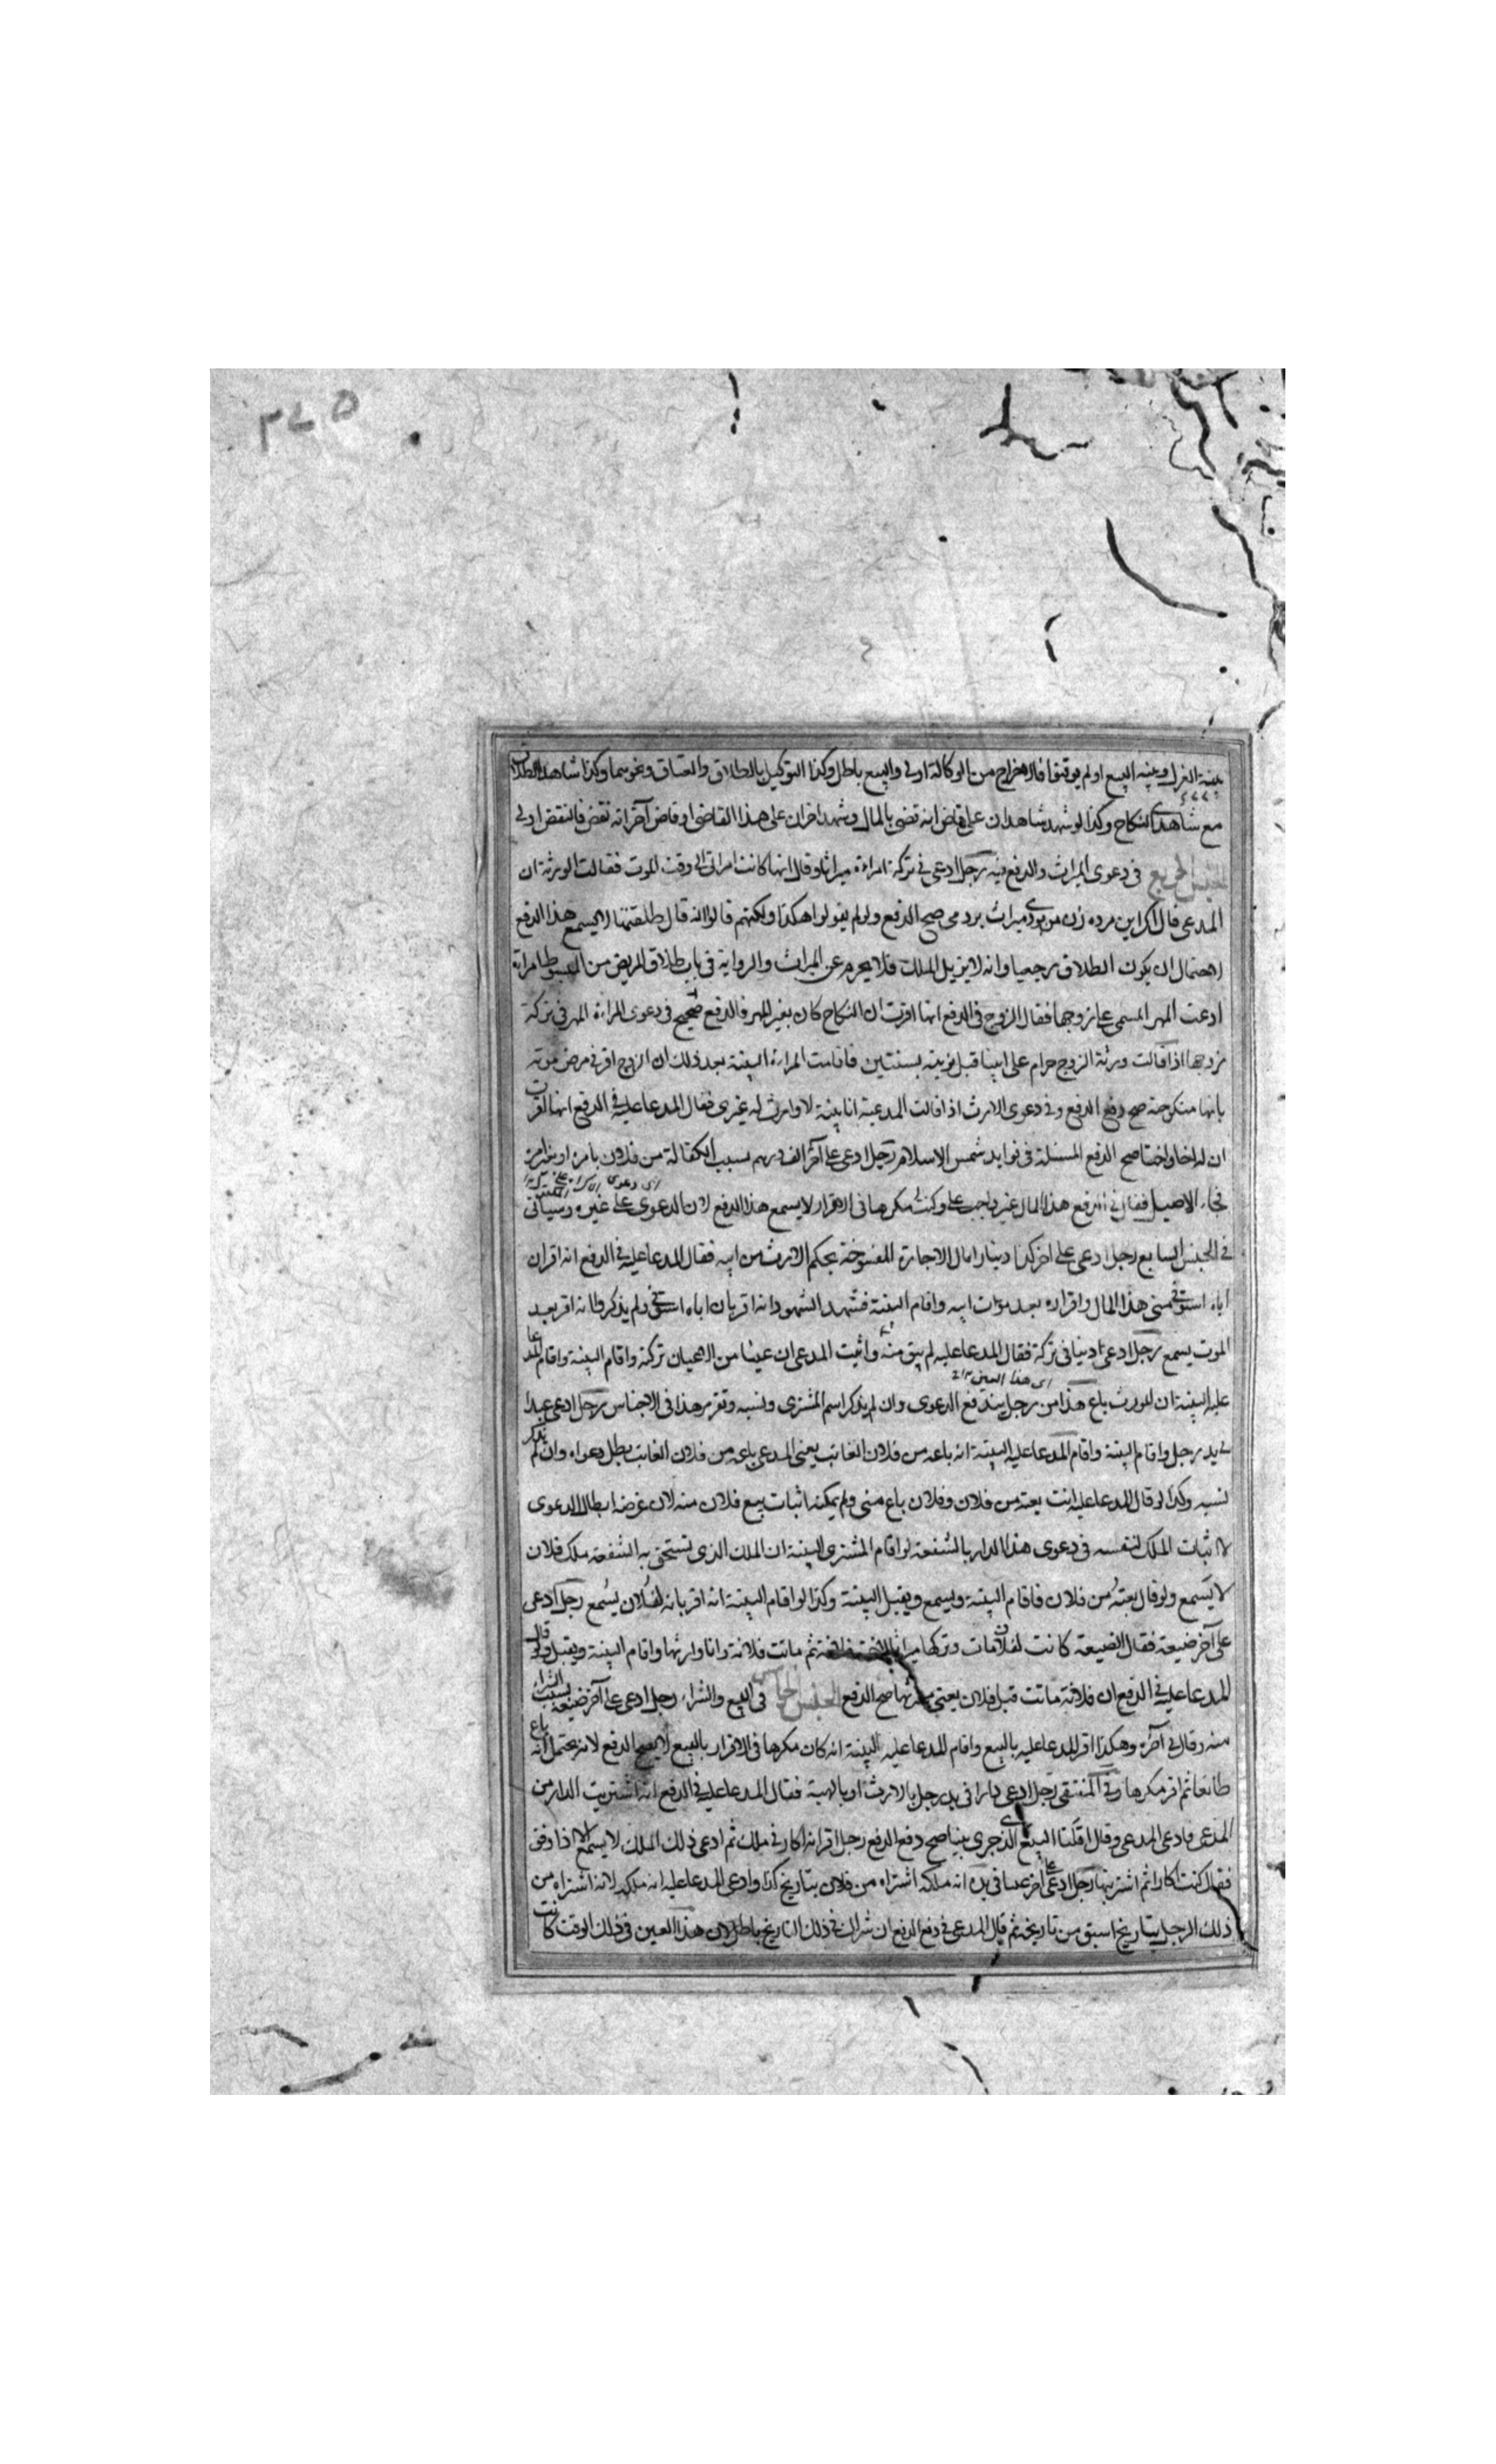 ٣٤٥
بينة العزل وبينة البيع او لم يوقتوا فالاخراج من الوكالة اولى والبيع باطل وكذا التوكيل بالطلاق والعتاق ونحوهما وكذا شاهدا الطلاق
مع شاهدى النكاح وكذا لو شهد شاهدان على قاض انه قضى بالمال وشهد اخران على هذا القاضى او قاض آخر انه نقض فالنقض اولى
فى دعوى الميراث والدفع فيه رجل ادعى فى تركة امراءة ميراثا وقال انها كانت امراتى الى وقت الموت فقالت الورثة ان
المدعى قال اكر اين مرده زن من بودى ميراث بردمى صح الدفع ولو لم يقولوا هكذا ولكنهم قالوا انه قال طلقتها لا يسمع هذا الدفع
لاحتمال ان يكون الطلاق رجعيا وانه لا يزيل الملك فلا يحرم عن الميراث والرواية فى باب طلاق المريض من المبسوط امراة
ادعت المهر المسمى على زوجها فقال الزوج فى الدفع انها اقرت ان النكاح كان بغير المهر فالدفع صحيح فى دعوى المراءة المهر فى تركة
زوجها اذا قالت ورثة الزوج حرام على ابينا قبل موته بسنتين فاقامت المراءة البينة بعد ذلك ان الزوج اقر فى مرض موته
بانها منكوحته صح دفع الدفع وفى دعوى الارث اذا قالت المدعية انا بنته لا وارث له غيرى فقال المدعا عليه فى الدفع انها اقرت
ان له اخا واختا صح الدفع المسئلة فى فوايد شمس الاسلام رجل ادعى على آخر الف درهم بسبب الكفالة من فلان بامره او بغير امره
فجاء الاصيل فقال فى الدفع هذا المال غير واجب على وكنت مكرها فى الاقرار لا يسمع هذا الدفع لان الدعوى على غيره وسياتى
فى الجنس السابع رجل ادعى على اخر كذا دينارا مال الاجارة المفسوخة بحكم الارث من ابيه فقال المدعا عليه فى الدفع انه اقر ان
اباه استوفى منى هذا المال واقراره بعد موت ابيه واقام البينة فشهد الشهود انه اقر بان اباه استوفى ولم يذكروا انه اقر بعد
الموت يسمع رجل ادعى دينا فى تركة فقال المدعا عليه لم يبق منه واثبت المدعى ان عينا من الاعيان تركة واقام البينة واقام المدعا
اى هذا العين
عليه البينة ان المورث باع هذا من رجل يندفع الدعوى وان لم يذكر اسم المشترى ونسبه وتقرير هذا فى الاجناس رجل ادعى عبدا
فى يد رجل واقام البينة واقام المدعا عليه البينة انه باعه من فلان الغائب يعنى المدعى باعه من فلان الغائب بطل دعواه وان لم يذكر
نسبه وكذا لو قال المدعا عليه انت بعته من فلان وفلان باع منى ولم يمكنه اثبات بيع فلان منه لان غرضه ابطال الدعوى
لا اثبات الملك لنفسه فى دعوى هذا الدار بالشفعة لو اقام المشترى البينة ان الملك الذى تستحق به الشفعة ملك فلان
لا يسمع ولو قال بعته من فلان فاقام البينة ويسمع ويقبل البينة وكذا لو اقام البينة انه اقر بانه لفلان يسمع رجل ادعى
على آخر ضيعة فقال الضيعة كانت لفلان مات وتركها ميراثا لاخته فلانة ثم ماتت فلانة وانا وارثها واقام البينة ويقبل ولو قال
المدعا عليه فى الدفع ان فلانة ماتت قبل فلان يعنى مورثها صح الدفع الجنس الخامس فى البيع والشراء رجل ادعى على آخر ضيعة بسبب الشراء
منه وقال فى آخره وهكذا اقر المدعا عليه بالبيع واقام المدعا عليه البينة انه كان مكرها فى الاقرار بالبيع لا يصح الدفع لانه يحتمل انه باع
طائعا ثم اقر مكرها وفى المنتقى رجل ادعى دارا فى يد رجل بالارث او بالهبة فقال المدعا عليه فى الدفع انه اشتريت الدار من
المدعى فادعى المدعى وقال اقلنا البيع الذى جرى بينا صح دفع الدفع رجل اقر انه اكار فى ملك ثم ادعى ذلك الملك لا يسمع الا اذا وفق
فقال كنت اكارا ثم اشتريتها رجل ادعى على آخر عينا فى يده انه ملكه اشتراه من فلان بتاريخ كذا وادعى المدعا عليه انه ملكه لانه اشتراه من
ذلك الرجل بتاريخ اسبق من تاريخه ثم قال المدعى فى دفع الدفع ان شراك فى ذلك التاريخ باطل لان هذا العين فى ذلك الوقت كانت